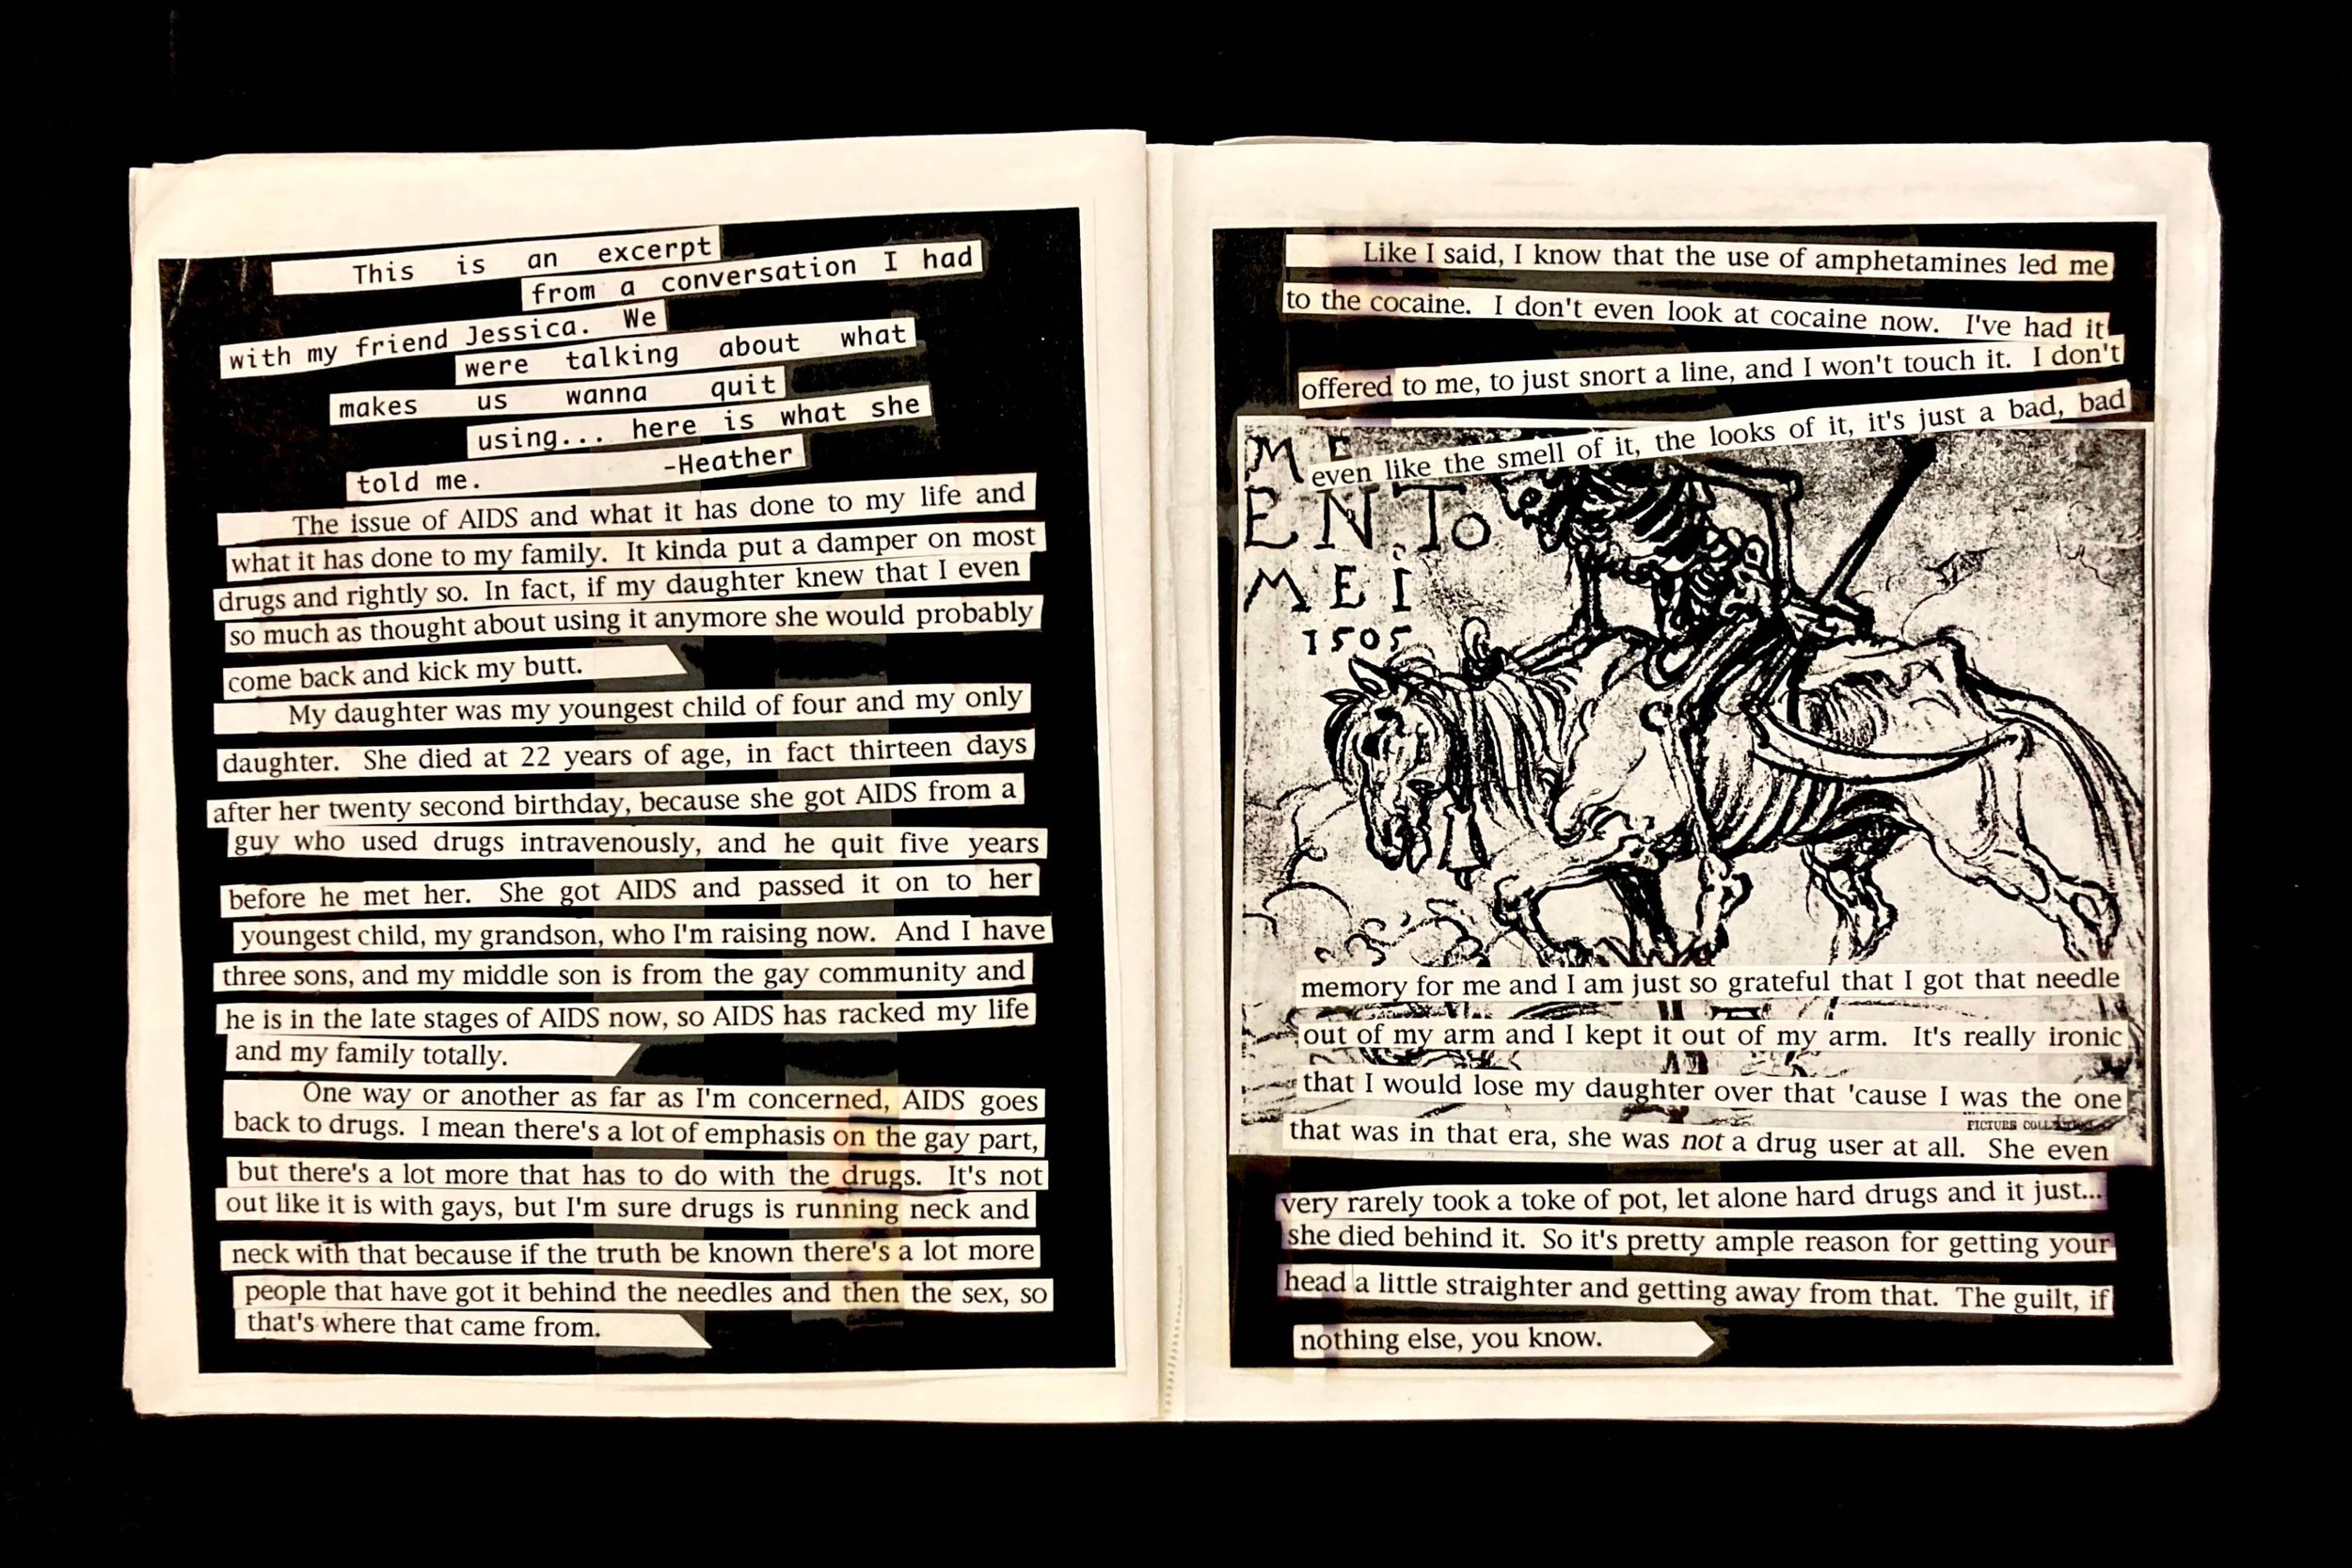 This is an excerpt
from a conversation I had
with my friend Jessica. We
were talking about what
makes us wanna quit
using... here is what she
told me. -Heather
The issue of AIDS and what it has done to my life and
what it has done to my family. It kinda put a damper on most
drugs and rightly so. In fact, if my daughter knew that I even
so much as thought about using it anymore she would probably
come back and kick my butt.
My daughter was my youngest child of four and my only
daughter. She died at 22 years of age, in fact thirteen days
after her twenty second birthday, because she got AIDS from a
guy who used drugs intravenously, and he quit five years
before he met her. She got AIDS and passed it on to her
youngest child, my grandson, who I'm raising now. And I have
three sons, and my middle son is from the gay community and
he is in the late stages of AIDS now, so AIDS has racked my life
and my family totally.
One way or another as far as I'm concerned, AIDS goes
back to drugs. I mean there's a lot of emphasis on the gay part,
but there's a lot more that has to do with the drugs. It's not
out like it is with gays, but I'm sure drugs is running neck and
neck with that because if the truth be known there's a lot more
people that have got it behind the needles and then the sex, so
that's where that came from.
Like I said, I know that the use of amphetamines led me
to the cocaine. I don't even look at cocaine now. I've had it
offered to me, to just snort a line, and I won't touch it. I don't
even like the smell of it, the looks of it, it's just a bad, bad
ME
ENTO
MEI
1505
memory for me and I am just so grateful that I got that needle
out of my arm and I kept it out of my arm. It's really ironic
that I would lose my daughter over that 'cause I was the one
PICTURE
that was in that era, she was not a drug user at all. She even
very rarely took a toke of pot, let alone hard drugs and it just...
she died behind it. So it's pretty ample reason for getting your
head a little straighter and getting away from that. The guilt, if
nothing else, you know.